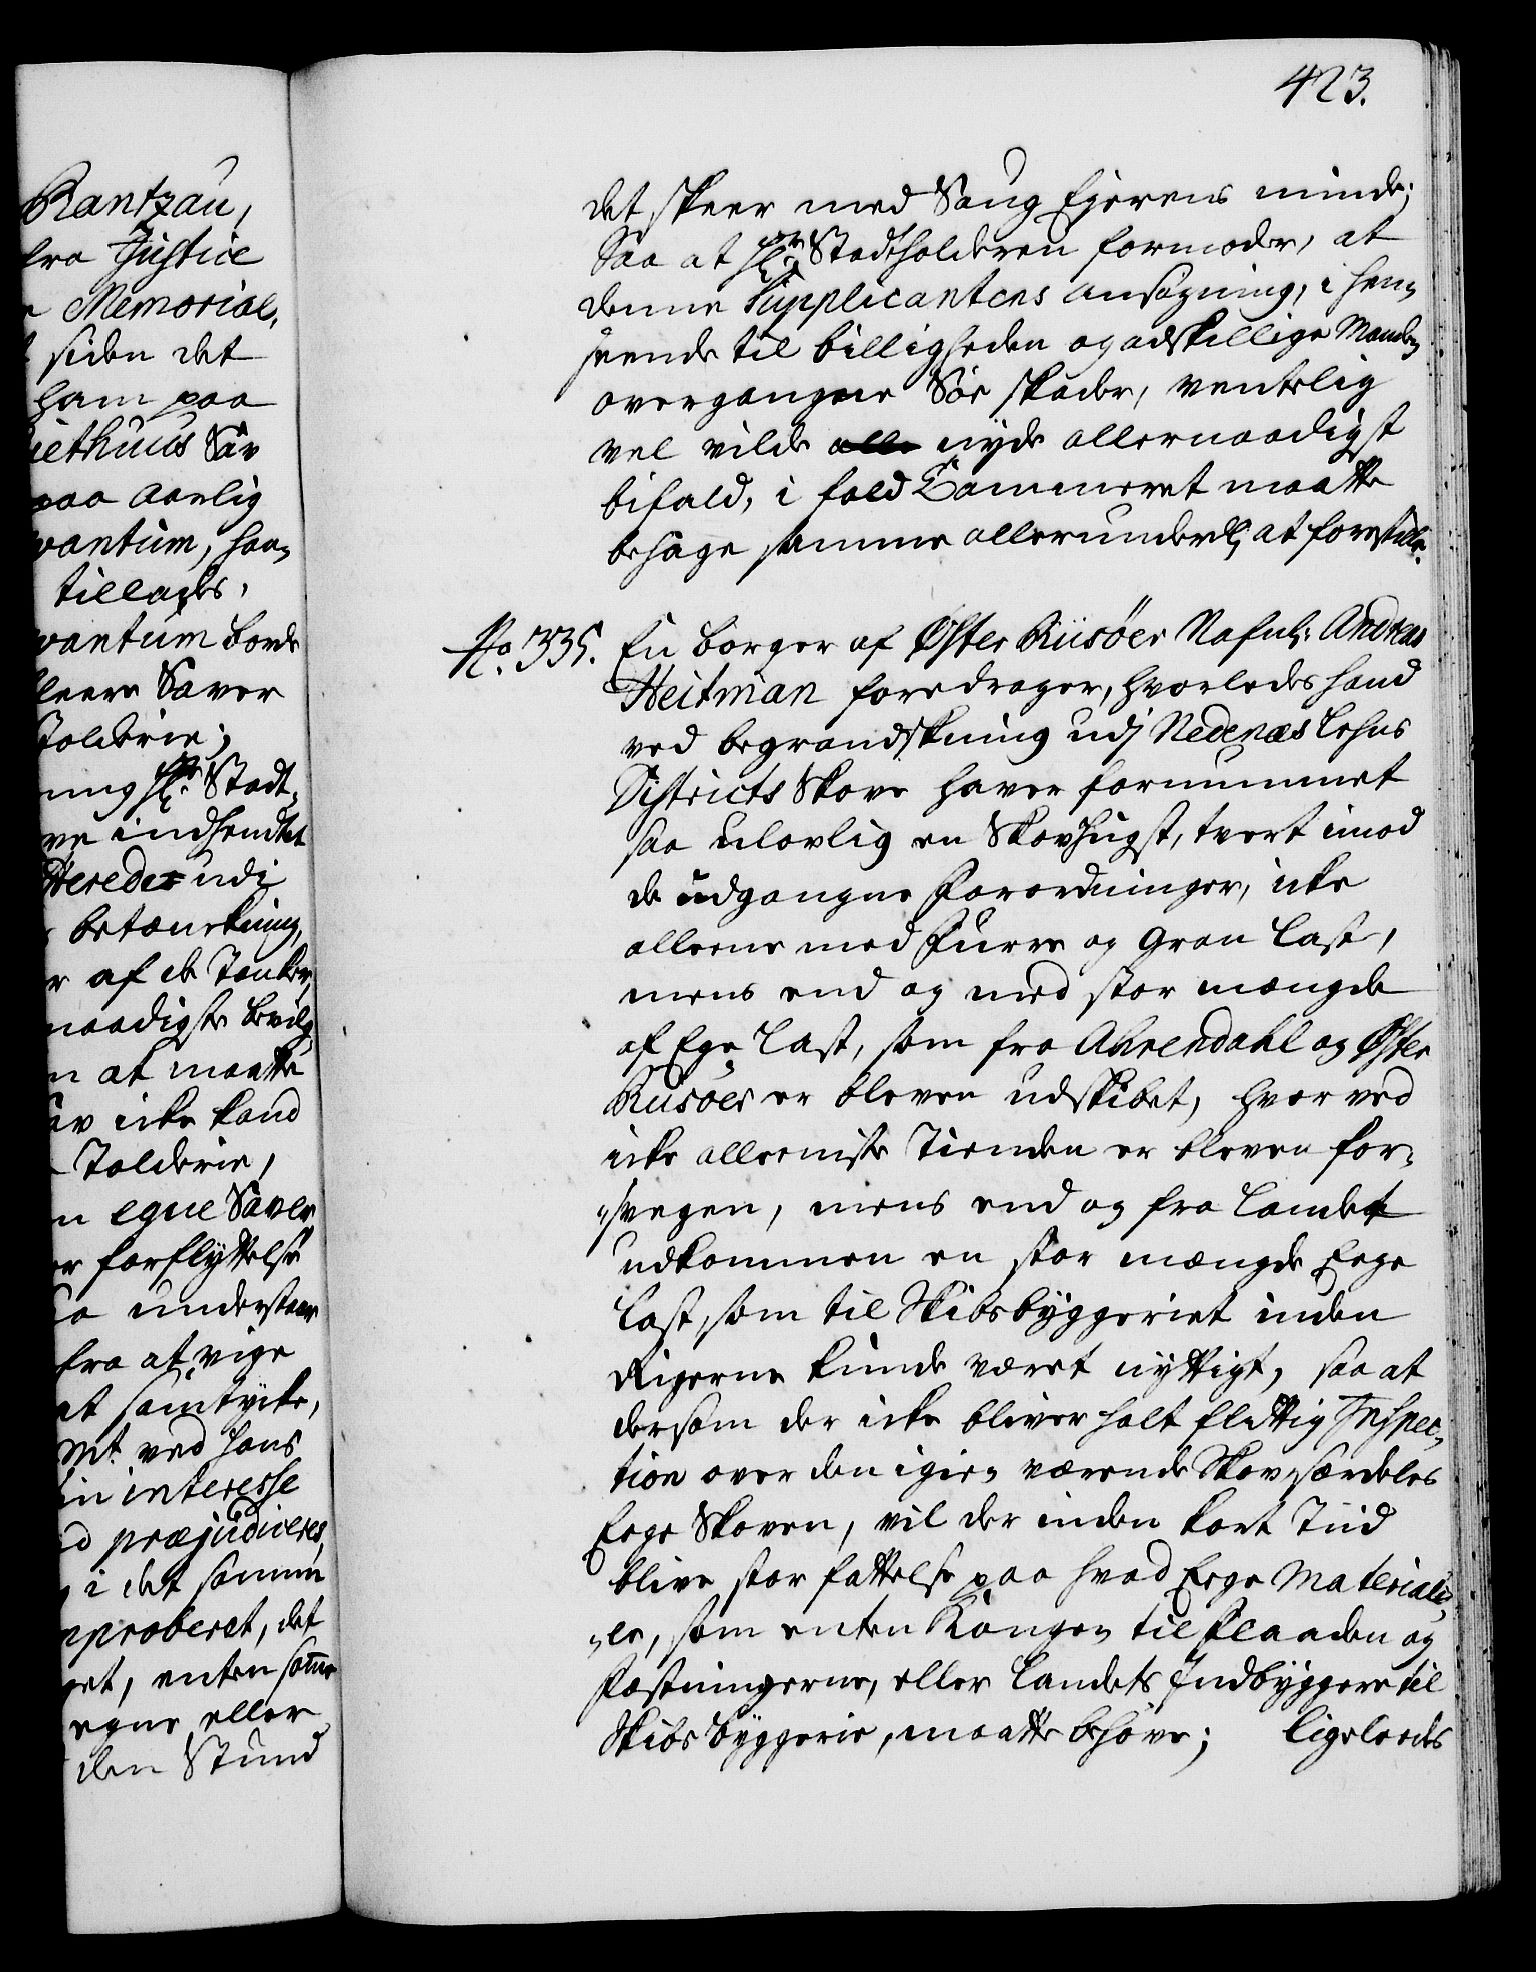 423.
Rantzau,
fra Justice
Memorial,
siden det
ham paa
Sav
paa aarlig
vantum, haa„
tillagdt,
vantum borde
fleere Saver
Tolderie;
ning Hr. Stadt„
indhendtet
Heredet udi
betænkning,
r af de Tanker,
naadigste bevilg„
n at maatte
av icke kand
Tolderie,
n egne Saver
er forflyttelse
understaar
fra at vige
et samtycke,
Mt. ved hans
in interesse
d præjudiceres,
i det samme
approberet, det
get, enten samme
egne eller
den Stund
det skeer med Saug Ejerens minde;
Saa at Hr. Stadtholderen formoder, at
denne Supplicantens ansøgning, i hen„
seende til billigheden og adskillige Manden
overgangne Søe skader, ventelig
vel vilde alle nyde allernaadigst
bifald, i fald Cammeret maatte
behage samme allerunderdl. at forestille.
No. 335. En borger af Øster Riisöer Nafnl: Andreas
Heitman foredrager, hvorledes hand
ved begrandskning udj Nedenæs Lehns
Districts Skove haver fornummet
saa ulovlig en Skovhugst, tvert imod
de udgangne Forordninger, icke
alleene med Furre og Gran Last,
mens end og med stor mængde
af Ege Last, som fra Ahrendahl og Øster
Rusöer er bleven udskibet, hvor ved
icke alleeniste Tienden er bleven for„
„svegen, mens end og fra Landet
udkommen en stor mængde Eege
Last, som til Skibsbyggeriet inden
Rigerne kunde været nyttigt, saa at
dersom der icke bliver holt flittig Inspec„
tion over den igien værende Skov, særdeles
Eege Skoven, vil der inden kort Tiid
blive stor fattelse paa hvad Eege Materiali„
„er, som enten Kongen til Flaaden og
Fæstningerne, eller Landets Indbyggere til
Skibs byggerie, maatte behöve; Ligeleedes